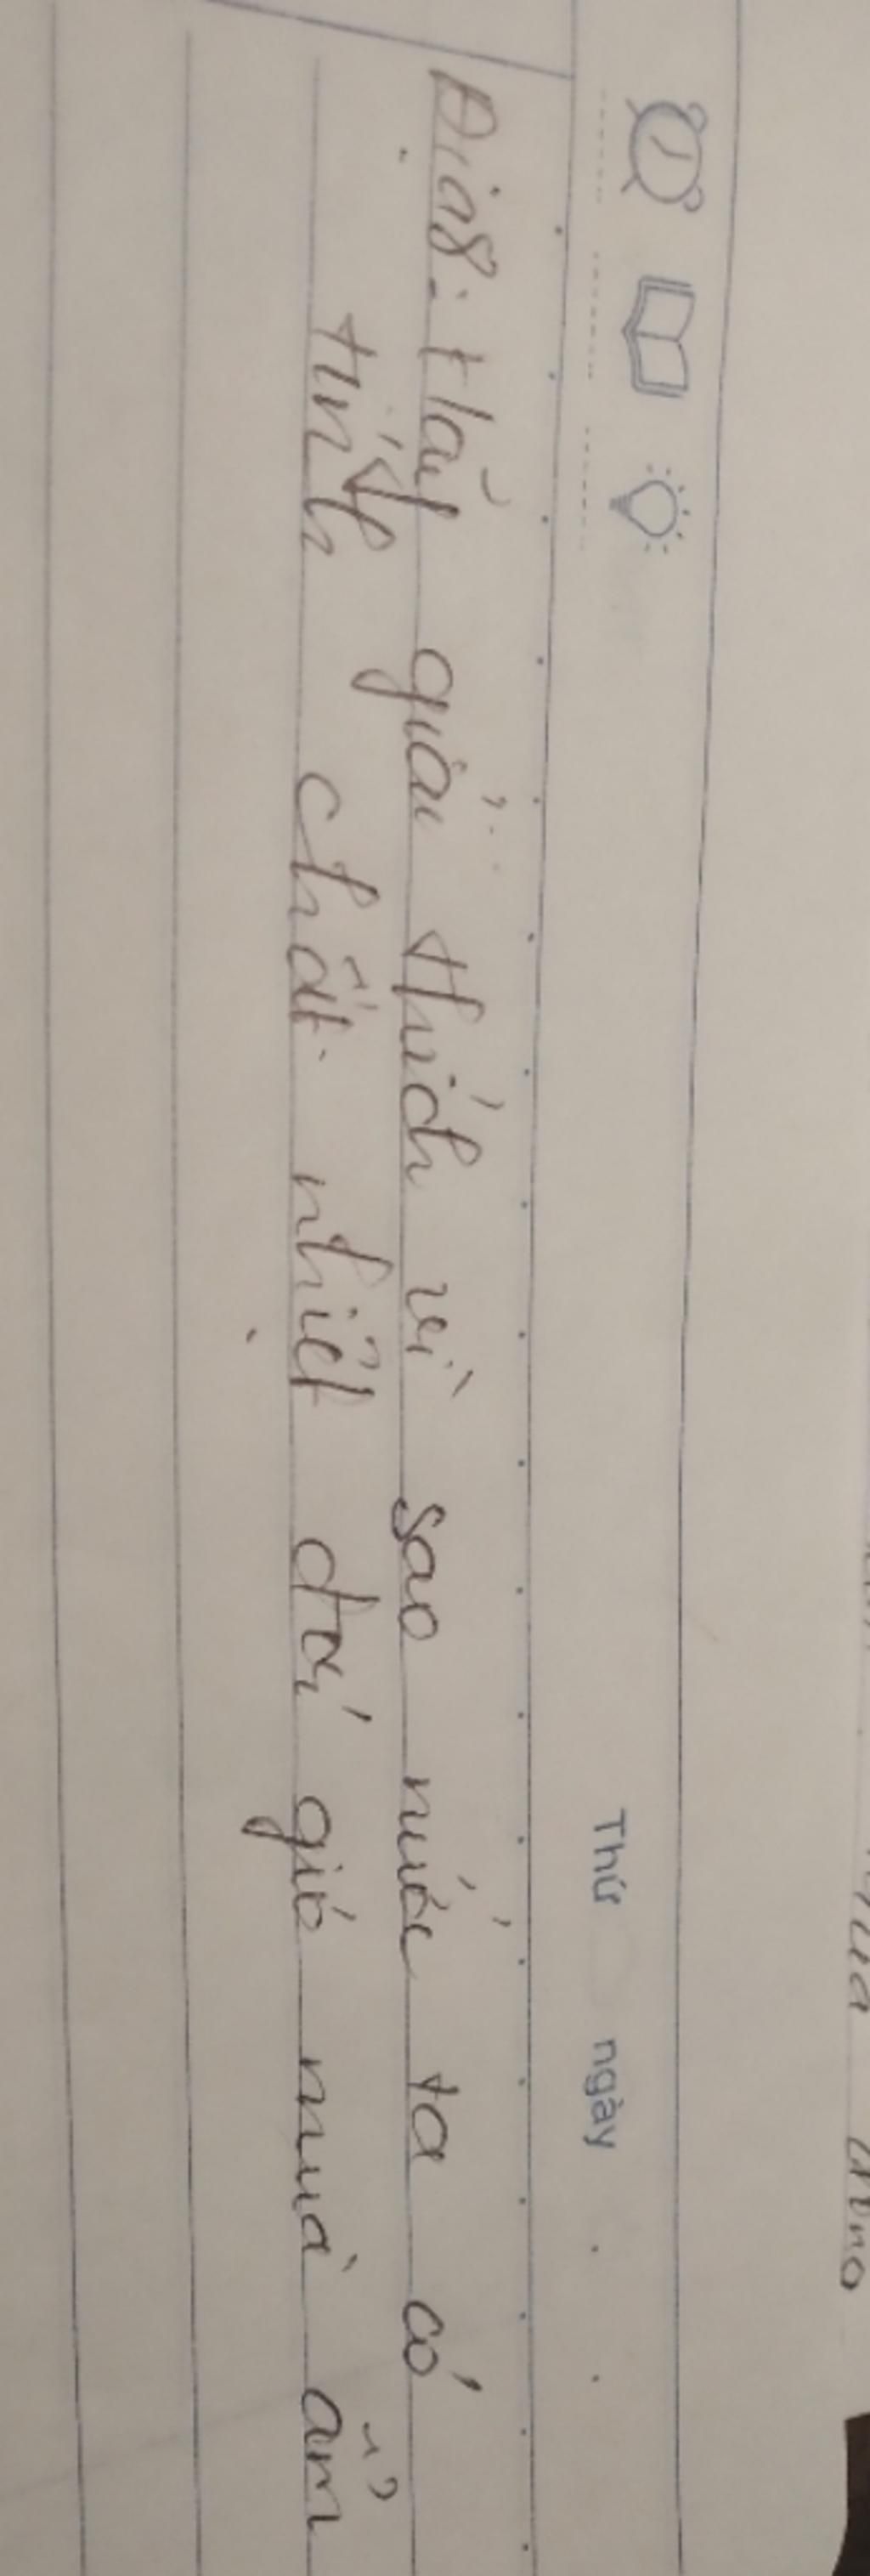 Thứ ngày
Địa 8: Hãy giải thích vì sao nước ta có
tính chất nhiệt đới gió mùa ẩm